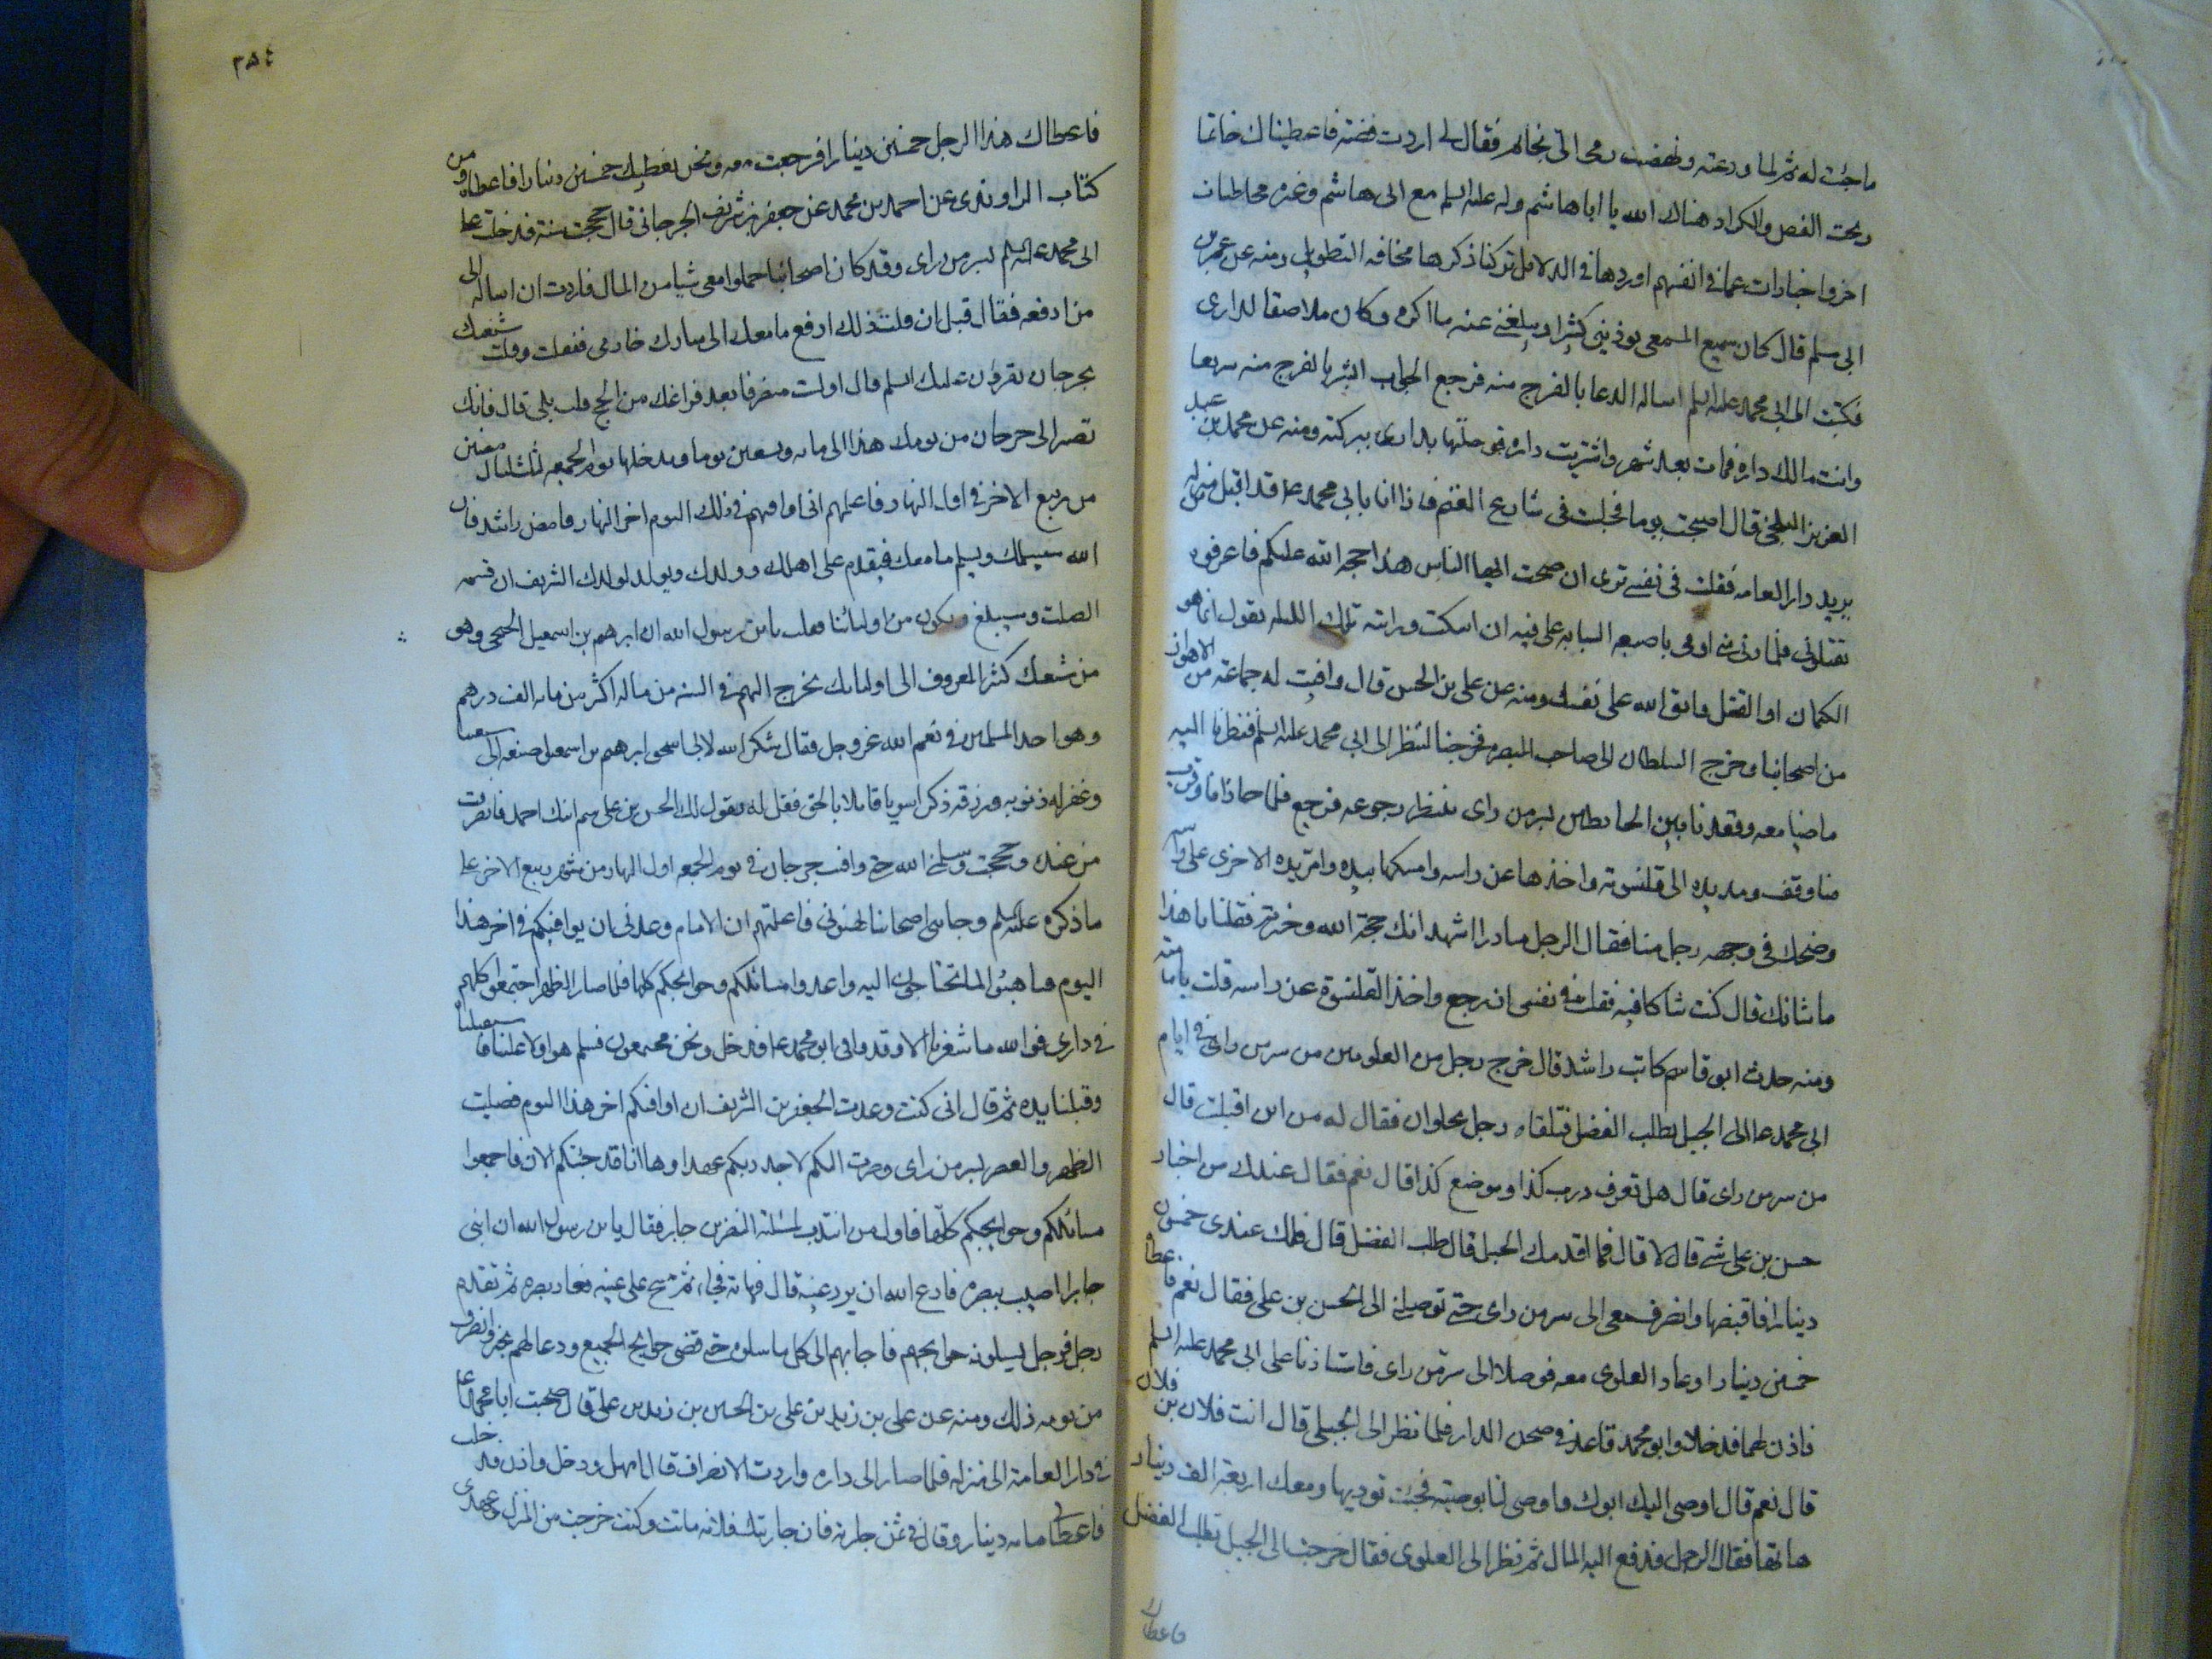 ماجئت له ثم لما ودعته ونهضت رمى الي بخاتم فقال لي اردت فضته فاعطيناك خاتما
ربحت الفص والكراء هناك الله يا اباهاشم وله عليه السلم مع ابى هاشم وغيره مخاطبات
اخر واخبارات عما في انفسهم اوردها في الدلائل تركنا ذكرها مخافه التطويل ومنه عن عمر بن
ابى مسلم قال كان سميع المسمعى يوذينى كثيرا ويبلغني عنه ما اكره وكان ملاصقا لدارى
فكتبت الى ابى محمد عليه السلم اساله الدعا بالفرج منه فرجع الجواب ابشر بالفرج منه سريعا
وانت مالك داره فمات بعد شهر واشتريت داره فوصلتها بدارى ببركته ومنه عن محمد بن عبد
العزيز البلخى قال اصبحت يوما فجلست فى شارع الغنم فاذا انا بابي محمد عا قد اقبل من منزله
يريد دار العامه فقلت فى نفسى ترى ان صحت ايها الناس هذا حجه الله عليكم فاعرفوه
تقتلونى فلما دنى مني اومى باصبعه السبابه على فيه ان اسكت ورايته تلك الليله يقول انما هو
الكتمان او القتل فاتق الله على نفسك ومنه عن على بن الحسن قال وافت له جماعة من الاهواز
من اصحابنا وخرج السلطان الى صاحب البصره فخرجنا لننظر الى ابى محمد عليه السلم فنظرنا اليه
ماضيا معه وقعدنا بين الحايطين بسر من راى ننتظر رجوعه فرجع فلما حاذانا وقرب
منا وقف ومد يده الى قلنسوته واخذها عن راسه وامسكها بيده وامر يده الاخرى على راسه
وضحك في وجه رجل منا فقال الرجل مبادرا اشهد انك حجة الله وخيرته فقلنا يا هذا
ما شانك قال كنت شاكا فيه فقلت في نفسى ان رجع واخذ القلنسوة عن راسه قلت بامامته
ومنه حدث ابو قاسم كاتب راشد قال خرج رجل من العلويين من سر من راى في ايام
ابى محمد عا الى الجبل يطلب الفضل فتلقاه رجل بحلوان فقال له من اين اقبلت قال
من سر من راى قال هل تعرف درب كذا وموضع كذا قال نعم فقال عندك من اخبار
حسن بن على شى قال لا قال فما اقدمك الجبل قال طلب الفضل قال فلك عندى خمسون
دينارا فاقبضها وانصرف معى الى سر من راى حتى توصلني الى الحسن بن على فقال نعم فاعطاه
خمسين دينارا وعاد العلوى معه فوصلا الى سر من راى فاستاذنا على ابى محمد عليه السلم
فاذن لهما فدخلا وابو محمد قاعد في صحن الدار فلما نظر الى الجبلى قال انت فلان بن فلان
قال نعم قال اوصى اليك ابوك واوصى لنا بوصية فجئت توديها ومعك اربعة الف دينار
هاتها فقال الرجل فدفع اليه المال ثم نظر الى العلوى فقال خرجت الى الجبل تطلب الفضل
فاعطاك
٣٥٤
فاعطاك هذا الرجل خمسين دينارا فرجعت معه ونحن نعطيك خمسين دينارا فاعطاه ومن
كتاب الراوندى عن احمد بن محمد عن جعفر بن شريف الجرجانى قال حججت سنة فدخلت على
ابى محمد عليه السلم بسر من راى وقد كان اصحابنا حملوا معى شيا من المال فاردت ان اساله الى
من ادفعه فقال قبل ان قلت ذلك ادفع ما معك الى مبارك خادمى ففعلت وقلت شيعتك
بجرجان يقرؤن عليك السلم قال اولست منصرفا بعد فراغك من الحج قلت بلى قال فانك
تصير الى جرجان من يومك هذا الى مايه وتسعين يوما وتدخلها يوم الجمعه لثلث ليال مضين
من ربيع الاخر في اول النهار فاعلمهم انى اوافيهم في ذلك اليوم اخر النهار فامض راشدا فان
الله سيسلمك ويسلم ما معك فتقدم على اهلك وولدك ويولد لولدك الشريف ابن فسمه
الصلت وسيبلغ ويكون من اوليائنا فقلت يابن رسول الله ان ابرهيم بن اسمعيل الجنجى وهو
من شيعتك كثير المعروف الى اوليائك يخرج اليهم في السنه من ماله اكثر من مايه الف درهم
وهو احد المسلمين في نعم الله عز وجل فقال شكر الله لابى اسحق ابرهيم بن اسمعيل صنيعه الى شيعتنا
وغفر له ذنوبه ورزقه ذكرا سويا قايلا بالحق فقل له يقول لك الحسن بن على سم ابنك احمد فانصرفت
من عنده وحججت وسلمني الله حتى وافيت جرجان في يوم الجمعه اول النهار من شهر ربيع الاخر على
ما ذكره عليه السلم وجانى اصحابنا يهنونى فاعلمتهم ان الامام وعدنى ان يوافيكم في اخر هذا
اليوم فتاهبوا لما تحتاجون اليه واعدوا مسائلكم وحوايجكم كلها فلما صلوا الظهر اجتمعوا كلهم
في دارى فوالله ما شعرنا الا وقد وافى ابو محمد عا فدخل ونحن مجتمعون فسلم هو اولا علينا فاستقبلناه
وقبلنا يده ثم قال انى كنت وعدت لجعفر بن الشريف ان اوافيكم اخر هذا اليوم فصليت
الظهر والعصر بسر من راى وصرت اليكم لاجدد بكم عهدا وها انا قد جئتكم الان فاجمعوا
مسائلكم وحوايجكم كلها فاول من انتدب لمسئلته النضر بن جابر فقال يابن رسول الله ان ابنى
جابرا اصيب ببصره فادع الله ان يرد عينيه قال فهاته فجاء ثم مسح على عينيه فعاد بصره ثم تقدم
رجل فرجل يسلونه حوايجهم فاجابهم الى كل ما سلوه حتى قضى حوايج الجميع ودعا لهم بخير وانصرف
من يومه ذلك ومنه عن على بن زيد بن على بن الحسين بن زيد بن على قال صحبت ابا محمد عا
في دار العامة الى منزله فلما صار الى داره واردت الانصراف قال امهل ودخل واذن فدخلت
فاعطاني مايه دينار وقال في ثمن جارية فان جاريتك فلانه ماتت وكنت خرجت من المنزل وعهدى